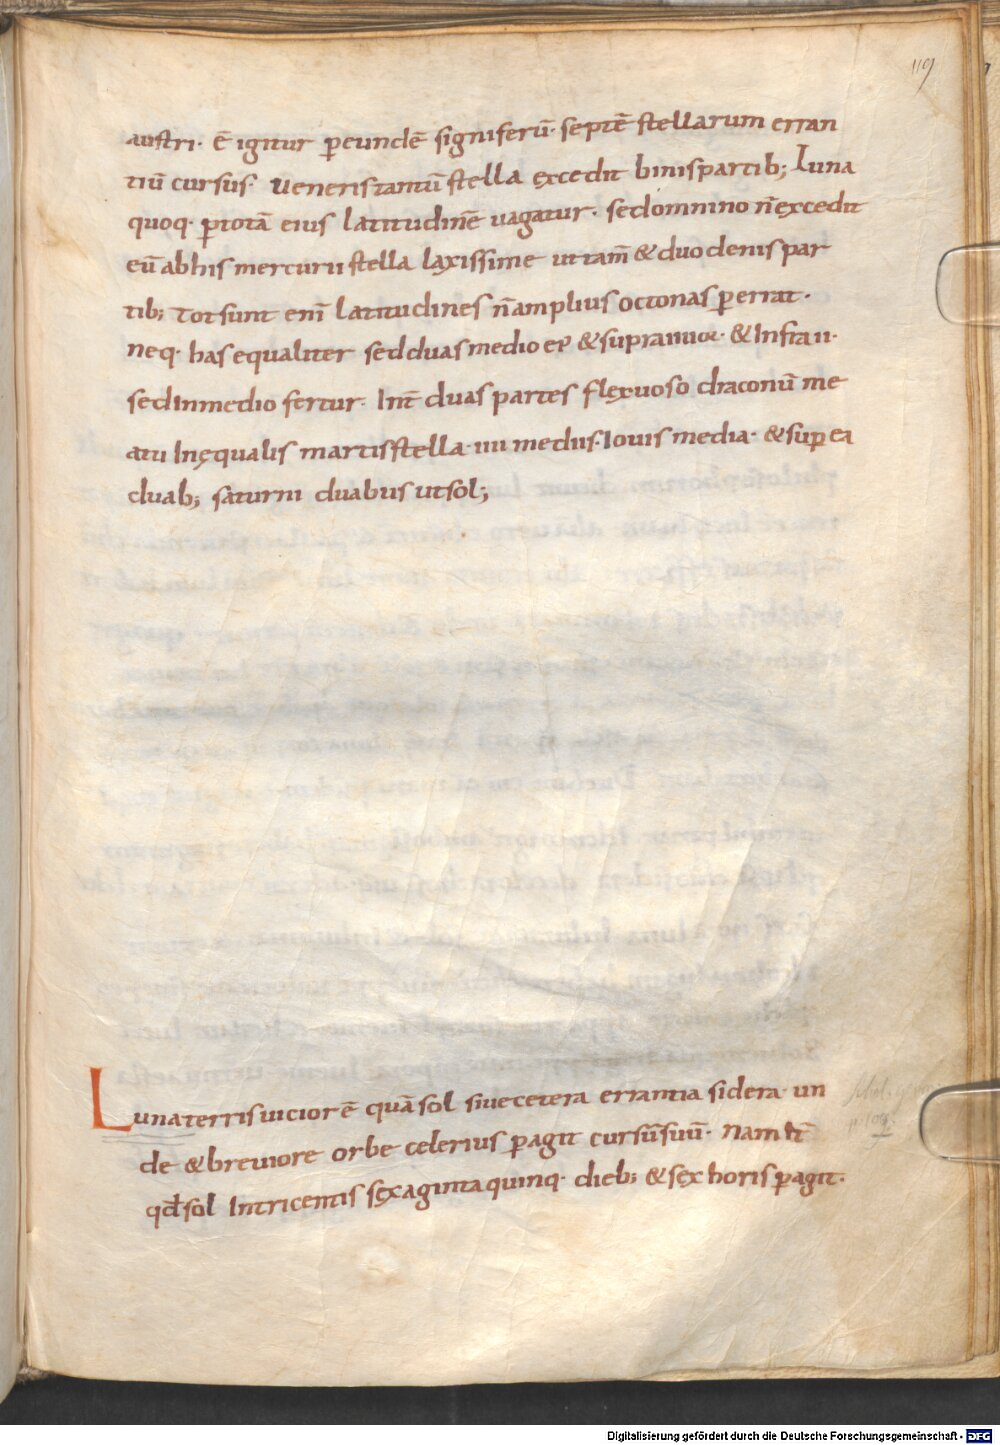 119
austri· ē igitur p̄eundē signiferū· septē stellarum erran
tiū cursus· ueneris tantū stella excedit binis partib; Luna
quoq· p̄ totā eius latitudinē uagatur· sed omnino n̄ excedit
eū ab his mercurii stella laxissime ut tam̄ & duodenis par
tib; tot sunt enī latitudines n̄ amplius octonas p̄errat·
neq· has equaliter sed duas medio & supra & infra ii·
sed in medio fertur· Int̄ duas partes flexuoso draconū me
atu Inęqualis martis stella· iiii mediis· Iouis media· & sup̄ ea
duab; saturni duabus ut sol;
Luna terris uicior ē quā sol siue cetera errantia sidera· un
de & breuiore orbe celerius p̄agit cursū suū· Nam
qđ sol Intricentis sexaginta quinq· dieb; & sex horis p̄agit·
Digitalisierung gefördert durch die Deutsche Forschungsgemeinschaft - DFG